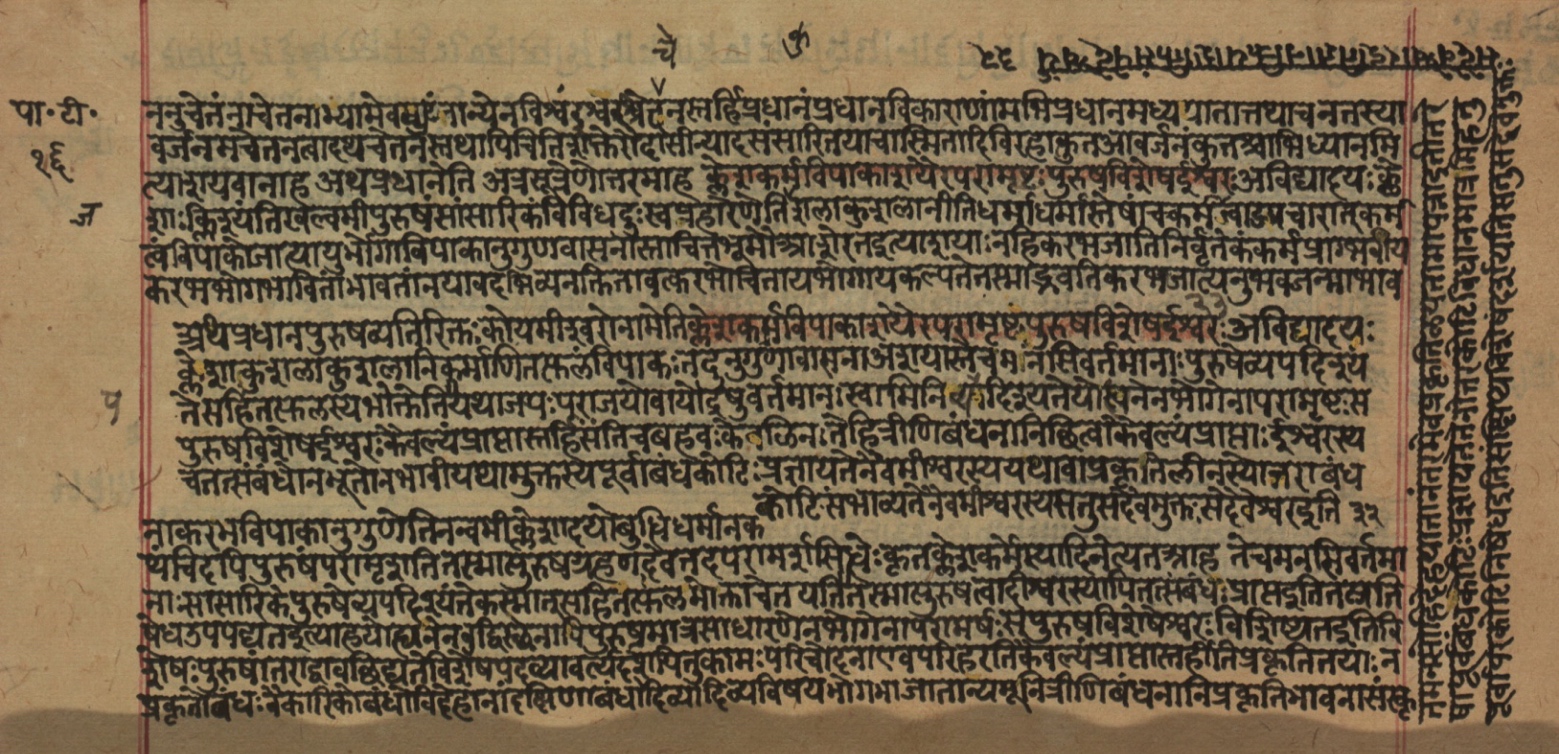 चे
पा॰ टी॰
१६
ज
ननुचेतनाचेतनाभ्यामेव नान्येनविश्वं ईश्वरश्चेतनस्तर्हिप्रधानंप्रधानविकाराणामपिप्रधानमध्यपातात्तथाचनतस्या
वर्जनमचेतनत्वादथचेतनस्तथापिचितिशक्तेरौदासीन्यादसंसारितयाचास्मितादिविरहात्कुतआवर्जनंकुतश्चाभिध्यानमि
त्याशयवानाह अथप्रधानेति अत्रसूत्रेणोत्तरमाह क्लेशकर्मविपाकाशयैरपरामृष्टःपुरुषविशेषईश्वरःअविद्यादयःक्ले
शाःक्लिश्यंतिखल्वमीपुरुषंसांसारिकंविविधदुःखप्रहारेणेति कुशलाकुशलानीतिधर्माधर्मास्तेषांचकर्मजत्वादुपचारात्कर्म
त्वंविपाकोजात्यायुर्भोगाविपाकानुगुणवासनास्ताश्चित्तभूमौआशेरतइत्याशयाःनहिकरभजातिनिर्वर्तकंकर्मप्राग्भवीय
करभभोगभावितांभावनांनयावदभिव्यनक्तितावत्करभोचितायभोगायकल्पतेतस्माद्भवतिकरभजात्यनुभवजन्माभाव
अथप्रधानपुरुषव्यतिरिक्तःकोयमीश्वरोनामेतिक्लेशकर्मविपाकाशयैरपरामृष्टःपुरुषविशेषईश्वरः अविद्यादयः
क्लेशाःकुशलाकुशलानिकर्माणितत्फलंविपाकःतदनुगुणावासनाआशयास्तेचमनसिवर्तमानाःपुरुषेव्यपदिश्यं
तेसहितत्फलस्यभोक्तेतियथाजयःपराजयोवायोद्धृषुवर्तमानःस्वामिनिव्यपदिश्यतेयोह्यनेनभोगेनापरामृष्टःस
पुरुषविशेषईश्वरःकैवल्यंप्राप्तास्तर्हिसंतिचबहवःकेवलिनःतेहित्रीणिबंधनानिछित्वाकैवल्यंप्राप्ताःईश्वरस्य
चतत्संबंधोनभूतोनभावीयथामुक्तस्यपूर्वाबंधकोटिःप्रज्ञायतेनैवमीश्वरस्ययथावाप्रकृतिलीनस्योत्तराबंध
कोटिःसंभाव्यतेनैवमीश्वरस्यसतुसदैवमुक्तःसदैवेश्वरइति २२
नाकरभविपाकानुगुणेतिनन्वमीक्लेशादयोबुद्धिधर्मानक
थंचिदपिपुरुषंपरामृशंतितस्मात्पुरुषग्रहणादेवतदपरामर्शसिद्धेःकृतंक्लेशकर्मेत्यादिनेत्यतआह तेचमनसिवर्तमा
नाःसांसारिकेपुरुषेव्यपदिश्यंतेकस्मात्सहितत्फलभोक्ताचेतयतेतितस्मात्पुरुषत्वादीश्वरस्यापितत्संबंधःप्राप्तइतितत्प्रति
षेधउपपद्यतइत्याहयोह्यनेनबुद्धिस्थेनापिपुरुषमात्रसाधारणेनभोगेनापरामर्षःसपुरुषविशेषेश्वरःविशिष्यतइतिवि
शेषःपुरुषांतराद्व्यवच्छिद्यतेविशेषपदव्यावर्त्यंदर्शयितुकामःपरिचोदनाएवंपरिहरतिकैवल्यंप्राप्तास्तर्हीतिप्रकृतिलयाःन
प्रकृतोबंधःवैकारिकोबंधोविदेहानांदक्षिणाबंधोदिव्यादिव्यविषयभोगभाजांतान्यमूनित्रीणिबंधनानिप्रकृतिभावनासंस्कृ
तमनसोहिदेहपातानंतरमेवप्रकृतिलयतामापन्नाइतीतरे
षांपूर्वाबंधकोटिःप्रज्ञायतेतेनोत्तरकोटिविधानमात्रमिहतु
पूर्वापरकोटिनिषेधइतिसंक्षिप्यविशेषंदर्शयतिसतुसदैवमुक्तः